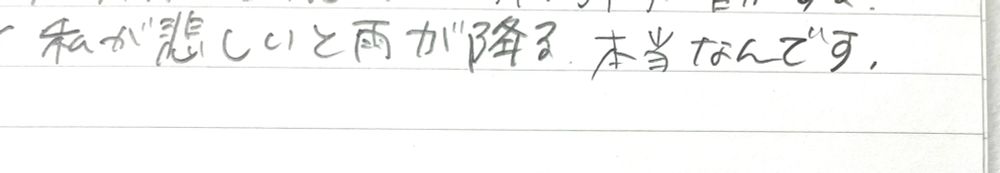 私が悲しいと雨が降る.本当なんです.